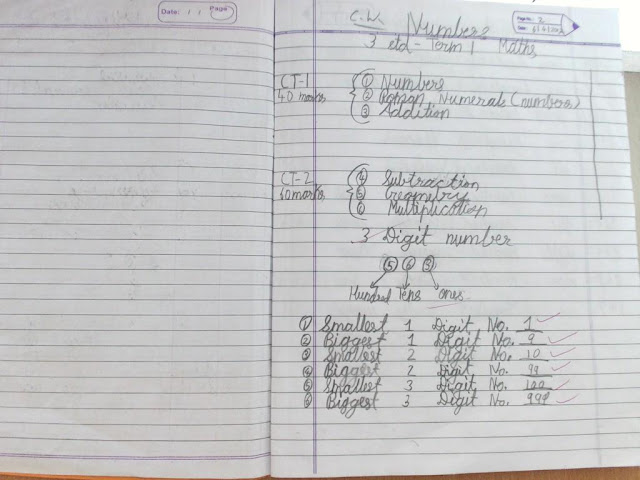 Date: / / Page
C.W. Numbers
Page No. 2
Date:
3 std - Term 1 Maths
CT-1 ① Numbers
40 marks ② Roman Numerals (numbers)
③ Addition
CT-2 ④ Subtraction
40 marks ⑤ Geometry
⑥ Multiplication
3 Digit number
⑤ ⑥ ③
Hundred Tens ones
① Smallest 1 Digit No. 1
② Biggest 1 Digit No. 9
③ Smallest 2 Digit No. 10
④ Biggest 2 Digit No. 99
⑤ Smallest 3 Digit No. 100
⑥ Biggest 3 Digit No. 999